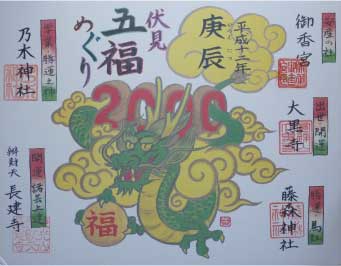 安産の社
御香宮
平成十二年
庚辰
伏見
五福
めぐり
勝運之神
乃木神社
2000
出世開運
大黒寺
藤森神社
開運 諸芸上達
辨財天 長建寺
福